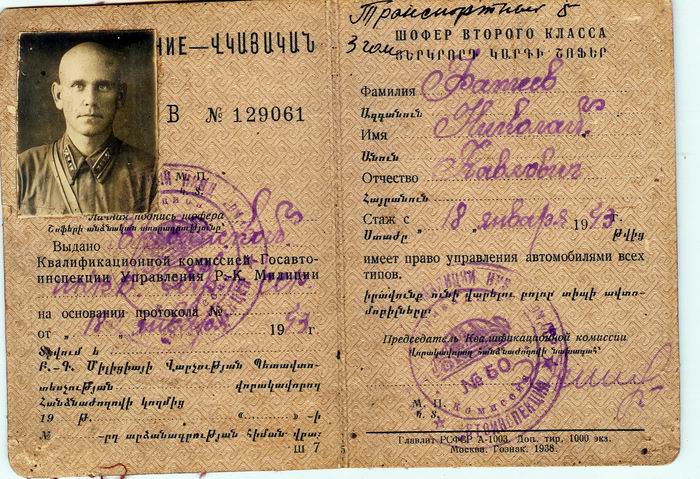 НИЕ—ՎԿԱՅԱԿԱՆ
В № 129061
М. П.
Կ. Տ.
Личная подпись шофера
Շոֆերի անձնական ստորագրությունը
Выдано
Квалификационной комиссией Госавто-
инспекции Управления Р.-К. Милиции
на основании протокола №
от „ 18 января 1943 г.
Տրվում է
Բ.-Գ. Միլիցիայի Վարչության Պետավտո-
տեսչության վորակավորող
Հանձնաժողովի կողմից
19 թ. «........» -ի
№ -րդ արձանագրության հիման վրա:
Ш 7
Транспортных 8
3
ШОФЕР ВТОРОГО КЛАССА
ՅԵՐԿՐՈՐԴ ԿԱՐԳԻ ՇՈՖԵՐ
Фамилия Фатеев
Ազգանուն
Имя Николай
Անուն
Отчество Павлович
Հայրանուն
Стаж с „ 18 января 1943 г.
Ստաժը „ “ թվից
имеет право управления автомобилями всех
типов.
իրավունք ունի վարելու բոլոր տիպի ավտո-
մոբիլները:
Председатель Квалификационной комиссии
Վորակավորող հանձնաժողովի նախագահ
№ 50
М. П.
Կ. Տ.
Главлит РСФСР А-1003. Доп. тир. 1000 экз.
Москва. Гознак. 1938.